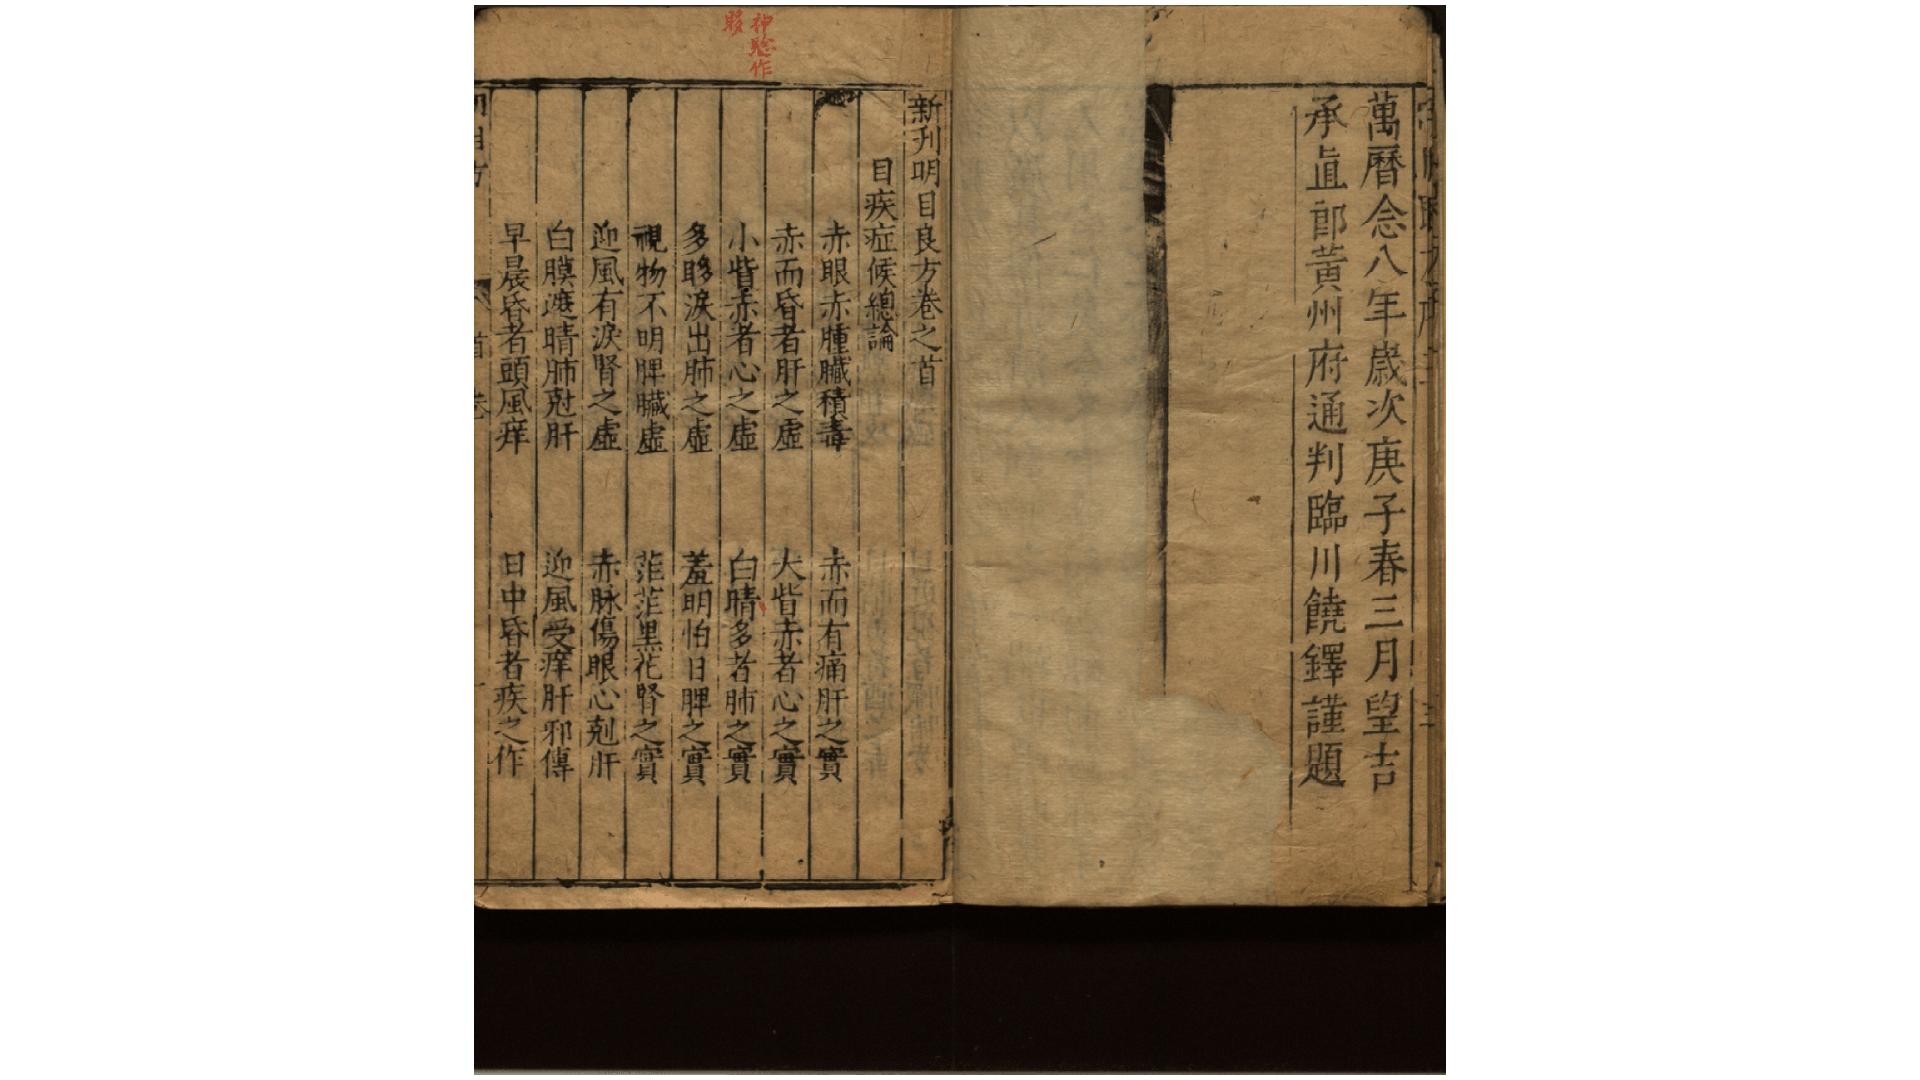 萬曆念八年歲次庚子春三月望吉
承直郎黃州府通判臨川饒鐸謹題
神驗作
眵
新刋明目良方卷之首
目疾症候總論
赤眼赤腫臟積毒 赤而有痛肝之實
赤而昏者肝之虛 大眥赤者心之實
小眥赤者心之虛 白睛多者肺之實
多眵淚出肺之虛 羞明怕日脾之實
視物不明脾臟虛 茫茫黑花腎之實
迎風有淚腎之虛 赤脉傷眼心剋肝
白膜遮睛肺尅肝 迎風受痒肝邪傳
早晨昏者頭風痒 日中昏者疾之作